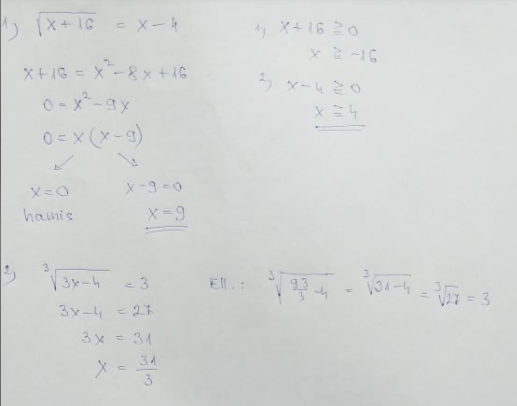 1, √(x+16) = x-4
x+16 = x²-8x+16
0 = x²-9x
0 = x(x-9)
x=0 x-9=0
hamis x=9
1, x+16 ≧ 0
x ≧ -16
2, x-4 ≧ 0
x ≧ 4
2, ∛(3x-4) = 3
3x-4 = 27
3x = 31
x = 31/3
Ell.: ∛(93/3-4) = ∛(31-4) = ∛27 = 3